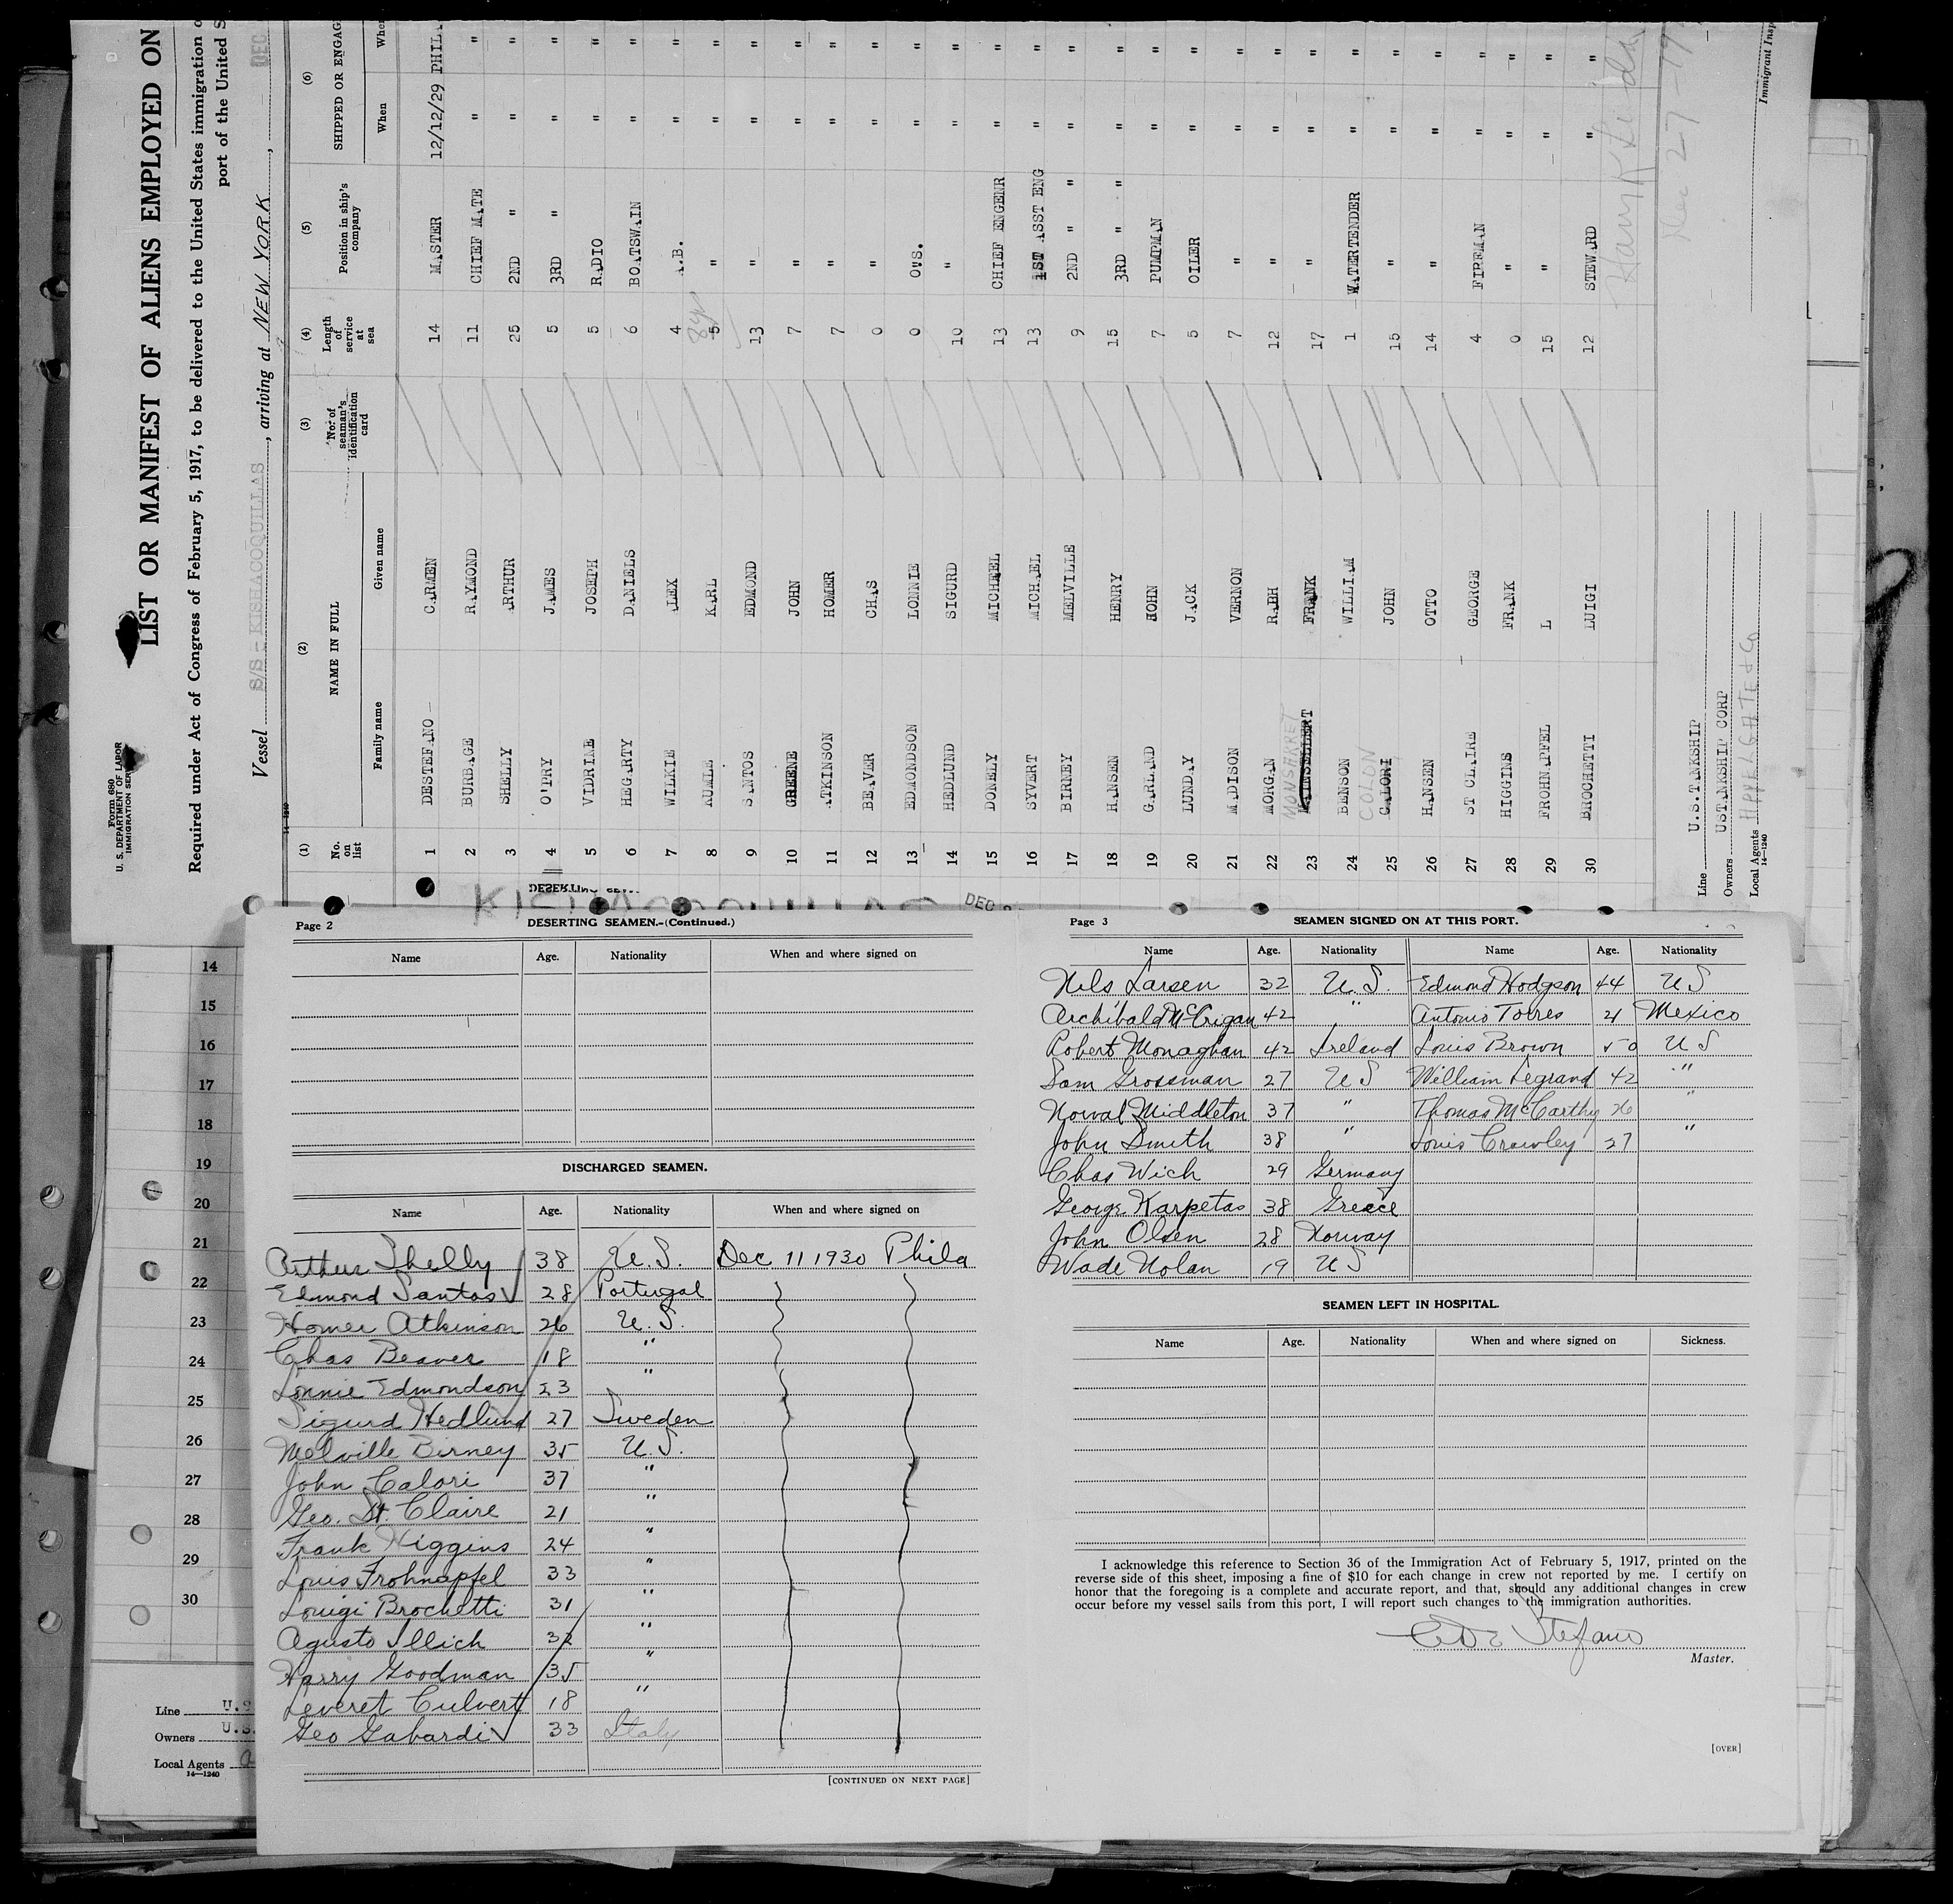 Form 680
U. S. DEPARTMENT OF LABOR
IMMIGRATION SERVICE
14-1240
LIST OR MANIFEST OF ALIENS EMPLOYED ON
Required under Act of Congress of February 5, 1917, to be delivered to the United States immigration
port of the United
Vessel S/S - KISHACOQUILLAS, arriving at NEW YORK, DEC
(1) (2) (3) (4) (5) (6)
No. on list NAME IN FULL No. of seaman's identification card Length of service at sea Position in ship's company SHIPPED OR ENGAG
Family name Given name When
1 DESTEFANO - CARMEN 14 MASTER 12/12/29 PHIL
2 BURBAGE RAYMOND 11 CHIEF MATE " "
3 SHELLY ARTHUR 25 2ND " " "
4 O'PRY JAMES 5 3RD " " "
5 VIDRINE JOSEPH 5 RADIO " "
6 HEGARTY DANIELS 6 BOATSWAIN " "
7 WILKIE ALEX 4 A.B. " "
8 KUMLE KARL 5 " " "
9 SANTOS EDMOND 13 " " "
10 GREENE JOHN 7 " " "
11 ATKINSON HOMER 7 " " "
12 BEAVER CHAS 0 " " "
13 EDMONDSON LONNIE 0 OVS. " "
14 HEDLUND SIGURD 10 " " "
15 DONELY MICHEEL 13 CHIEF ENGENR " "
16 SYVERT MICHAEL 13 1ST ASST ENG " "
17 BIRNEY MELVILLE 9 2ND " " " "
18 HANSEN HENRY 15 3RD " " " "
19 GARLAND JOHN 7 PUMPMAN " "
20 LUNDAY JACK 5 OILER " "
21 MADISON VERNON 7 " " "
22 MORGAN RALPH 12 " " "
23 MONSHKRET FRANK 17 " " "
24 BENSON WILLIAM 1 WATERTENDER " "
COLLON
25 CALORI JOHN 15 " " "
26 HANSEN OTTO 14 " " "
27 ST CLAIRE GEORGE 4 FIREMAN " "
28 HIGGINS FRANK 0 " " "
29 FROHNAPFEL L 15 " " "
30 BROCHETTI LUIGI 12 STEWARD " "
Dec 27-19
Line U.S.TANKSHIP
Owners USTANKSHIP CORP
Local Agents
14-1240
Immigrant Insp
14
15
16
17
18
19
20
21
22
23
24
25
26
27
28
29
30
Line U.S
Owners U.S.
Local Agents
14-1240
DEC
Page 2 DESERTING SEAMEN.-(Continued.)
Name Age. Nationality When and where signed on
DISCHARGED SEAMEN.
Name Age. Nationality When and where signed on
Arthur Shelly 38 U.S. Dec 11 1930 Phila
Edmond Santos 28 Portugal
Homer Atkinson 26 U.S.
Chas Beaver 18 "
Lonnie Edmondson 23 "
Sigurd Hedlund 27 Sweden
Melville Birney 35 U.S.
John Calori 37 "
Geo. St. Claire 21 "
Frank Higgins 24 "
Louis Frohnapfel 33 "
Louigi Brochetti 31 "
Agusto Illich 32 "
Harry Goodman 35 "
Leveret Culvert 18 "
Geo Gabardi 33 Italy
[CONTINUED ON NEXT PAGE]
Page 3 SEAMEN SIGNED ON AT THIS PORT.
Name Age. Nationality Name Age. Nationality
Nels Larsen 32 U.S. Edmond Hodgson 44 US
Archibald McGrigan 42 " Antonio Torres 21 Mexico
Robert Monaghan 42 Ireland Louis Brown 50 US
Sam Grossman 27 US William Legrand 42 "
Norval Middleton 37 " Thomas McCarthy 26 "
John Smith 38 " Louis Crowley 27 "
Chas Wich 29 Germany
George Karpetas 38 Greece
John Olsen 28 Norway
Wade Nolan 19 US
SEAMEN LEFT IN HOSPITAL.
Name Age. Nationality When and where signed on Sickness.
I acknowledge this reference to Section 36 of the Immigration Act of February 5, 1917, printed on the
reverse side of this sheet, imposing a fine of $10 for each change in crew not reported by me. I certify on
honor that the foregoing is a complete and accurate report, and that, should any additional changes in crew
occur before my vessel sails from this port, I will report such changes to the immigration authorities.
C De Stefano
Master.
[OVER]